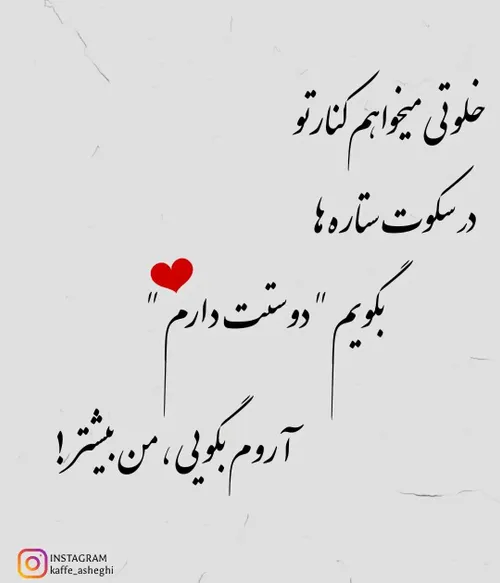 خلوتی میخواهم کنار تو
در سکوت ستاره ها
بگویم "دوستت دارم"
آروم بگویی ، من بیشتر!
INSTAGRAM
kaffe_asheghi